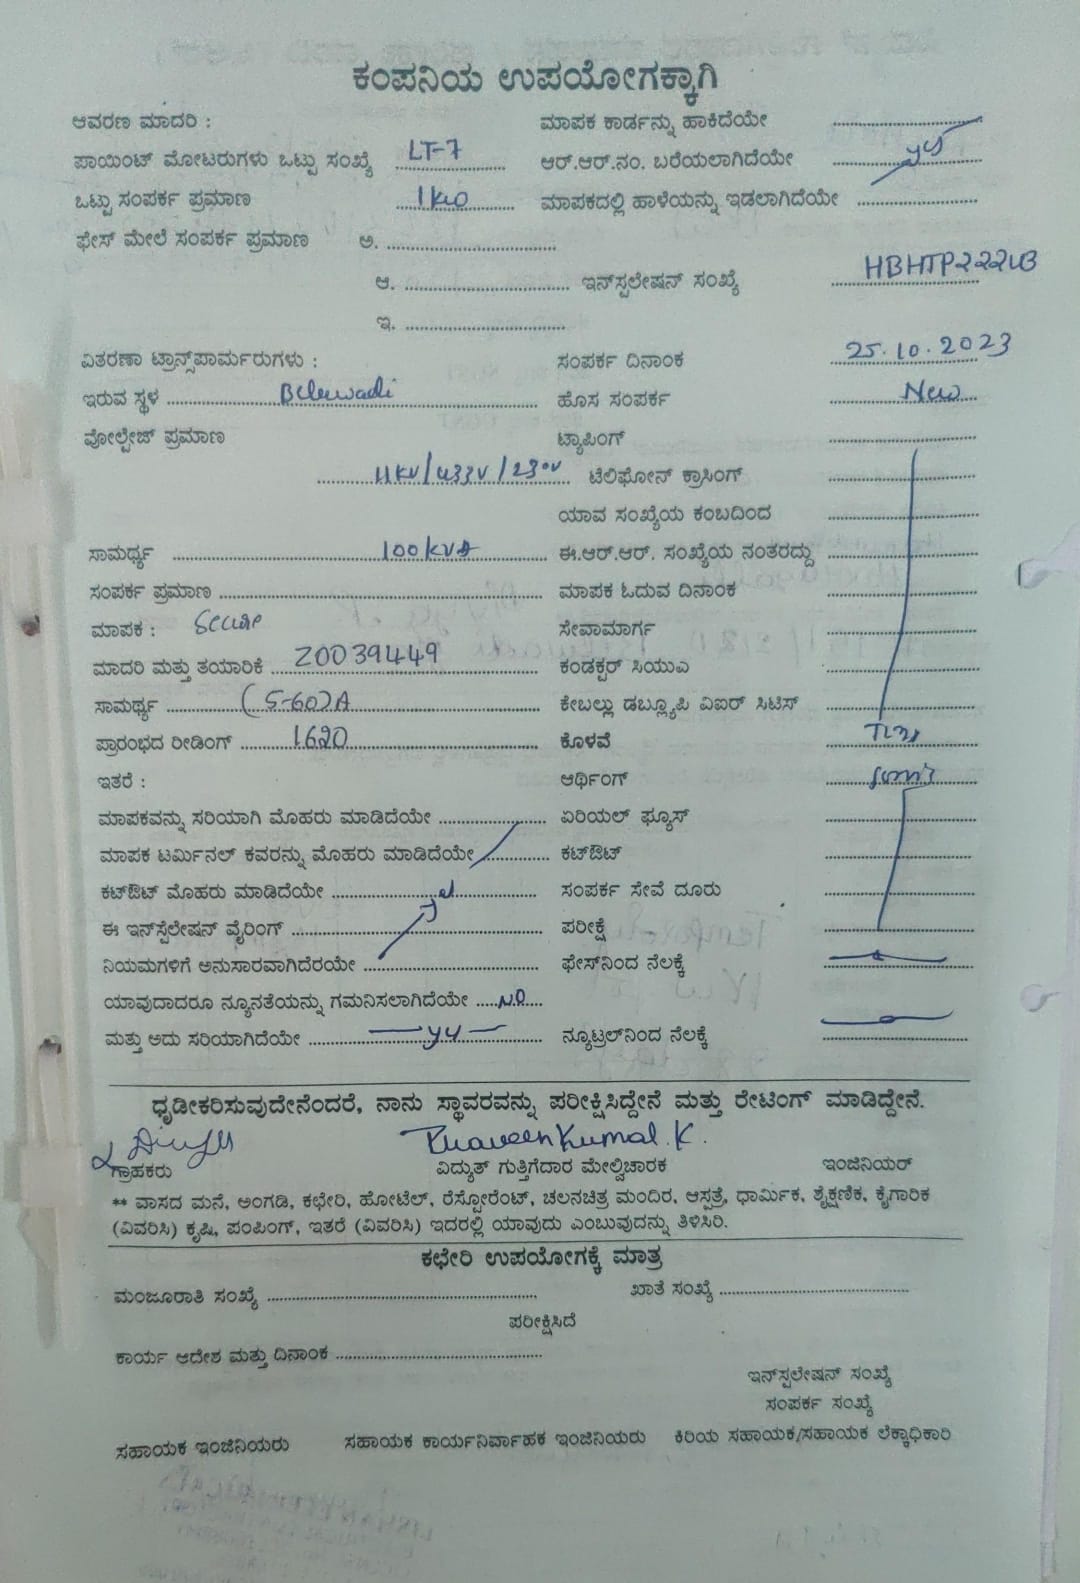 ಕಂಪನಿಯ ಉಪಯೋಗಕ್ಕಾಗಿ
ಆವರಣ ಮಾದರಿ : ಮಾಪಕ ಕಾರ್ಡನ್ನು ಹಾಕಿದೆಯೇ
ಪಾಯಿಂಟ್ ಮೋಟರುಗಳು ಒಟ್ಟು ಸಂಖ್ಯೆ LT-7 ಆರ್.ಆರ್.ನಂ. ಬರೆಯಲಾಗಿದೆಯೇ yes
ಒಟ್ಟು ಸಂಪರ್ಕ ಪ್ರಮಾಣ 1kw ಮಾಪಕದಲ್ಲಿ ಹಾಳೆಯನ್ನು ಇಡಲಾಗಿದೆಯೇ
ಫೇಸ್ ಮೇಲೆ ಸಂಪರ್ಕ ಪ್ರಮಾಣ ಅ.
ಆ. ಇನ್‌ಸ್ಪಲೇಷನ್ ಸಂಖ್ಯೆ
ಇ.
ವಿತರಣಾ ಟ್ರಾನ್ಸ್‌ಪಾರ್ಮರುಗಳು : ಸಂಪರ್ಕ ದಿನಾಂಕ 25.10.2023
ಇರುವ ಸ್ಥಳ Belewadi ಹೊಸ ಸಂಪರ್ಕ New
ವೋಲ್ಟೇಜ್ ಪ್ರಮಾಣ ಟ್ಯಾಪಿಂಗ್
11kv/433v/230v ಟೆಲಿಫೋನ್ ಕ್ರಾಸಿಂಗ್
ಯಾವ ಸಂಖ್ಯೆಯ ಕಂಬದಿಂದ
ಸಾಮರ್ಥ್ಯ 100kVA ಈ.ಆರ್.ಆರ್. ಸಂಖ್ಯೆಯ ನಂತರದ್ದು
ಸಂಪರ್ಕ ಪ್ರಮಾಣ ಮಾಪಕ ಓದುವ ದಿನಾಂಕ
ಮಾಪಕ : Secure ಸೇವಾಮಾರ್ಗ
ಮಾದರಿ ಮತ್ತು ತಯಾರಿಕೆ 20039449 ಕಂಡಕ್ಟರ್ ಸಿಯುಎ
ಸಾಮರ್ಥ್ಯ (5-60)A ಕೇಬಲ್ಲು ಡಬ್ಲ್ಯೂಪಿ ವಿಐರ್ ಸಿಟಿಸ್
ಪ್ರಾರಂಭದ ರೀಡಿಂಗ್ 1620 ಕೊಳವೆ
ಇತರೆ : ಆರ್ಥಿಂಗ್
ಮಾಪಕವನ್ನು ಸರಿಯಾಗಿ ಮೊಹರು ಮಾಡಿದೆಯೇ ಏರಿಯಲ್ ಫ್ಯೂಸ್
ಮಾಪಕ ಟರ್ಮಿನಲ್ ಕವರನ್ನು ಮೊಹರು ಮಾಡಿದೆಯೇ ಕಟ್‌ಔಟ್
ಕಟ್‌ಔಟ್ ಮೊಹರು ಮಾಡಿದೆಯೇ ಸಂಪರ್ಕ ಸೇವೆ ದೂರು
ಈ ಇನ್‌ಸ್ಪೆಲೇಷನ್ ವೈರಿಂಗ್ ಪರೀಕ್ಷೆ
ನಿಯಮಗಳಿಗೆ ಅನುಸಾರವಾಗಿದೆರಯೇ ಫೇಸ್‌ನಿಂದ ನೆಲಕ್ಕೆ
ಯಾವುದಾದರೂ ನ್ಯೂನತೆಯನ್ನು ಗಮನಿಸಲಾಗಿದೆಯೇ NO
ಮತ್ತು ಅದು ಸರಿಯಾಗಿದೆಯೇ yes ನ್ಯೂಟ್ರಲ್‌ನಿಂದ ನೆಲಕ್ಕೆ
ಧೃಡೀಕರಿಸುವುದೇನೆಂದರೆ, ನಾನು ಸ್ಥಾವರವನ್ನು ಪರೀಕ್ಷಿಸಿದ್ದೇನೆ ಮತ್ತು ರೇಟಿಂಗ್ ಮಾಡಿದ್ದೇನೆ.
Praveen Kumar.K.
ಗ್ರಾಹಕರು ವಿದ್ಯುತ್ ಗುತ್ತಿಗೆದಾರ ಮೇಲ್ವಿಚಾರಕ ಇಂಜಿನಿಯರ್
** ವಾಸದ ಮನೆ, ಅಂಗಡಿ, ಕಛೇರಿ, ಹೋಟೆಲ್, ರೆಸ್ಟೋರೆಂಟ್, ಚಲನಚಿತ್ರ ಮಂದಿರ, ಆಸ್ಪತ್ರೆ, ಧಾರ್ಮಿಕ, ಶೈಕ್ಷಣಿಕ, ಕೈಗಾರಿಕ
(ವಿವರಿಸಿ) ಕೃಷಿ, ಪಂಪಿಂಗ್, ಇತರೆ (ವಿವರಿಸಿ) ಇದರಲ್ಲಿ ಯಾವುದು ಎಂಬುವುದನ್ನು ತಿಳಿಸಿರಿ.
ಕಛೇರಿ ಉಪಯೋಗಕ್ಕೆ ಮಾತ್ರ
ಮಂಜೂರಾತಿ ಸಂಖ್ಯೆ ಖಾತೆ ಸಂಖ್ಯೆ
ಪರೀಕ್ಷಿಸಿದೆ
ಕಾರ್ಯ ಆದೇಶ ಮತ್ತು ದಿನಾಂಕ
ಇನ್‌ಸ್ಪಲೇಷನ್ ಸಂಖ್ಯೆ
ಸಂಪರ್ಕ ಸಂಖ್ಯೆ
ಸಹಾಯಕ ಇಂಜಿನಿಯರು ಸಹಾಯಕ ಕಾರ್ಯನಿರ್ವಾಹಕ ಇಂಜಿನಿಯರು ಕಿರಿಯ ಸಹಾಯಕ/ಸಹಾಯಕ ಲೆಕ್ಕಾಧಿಕಾರಿ